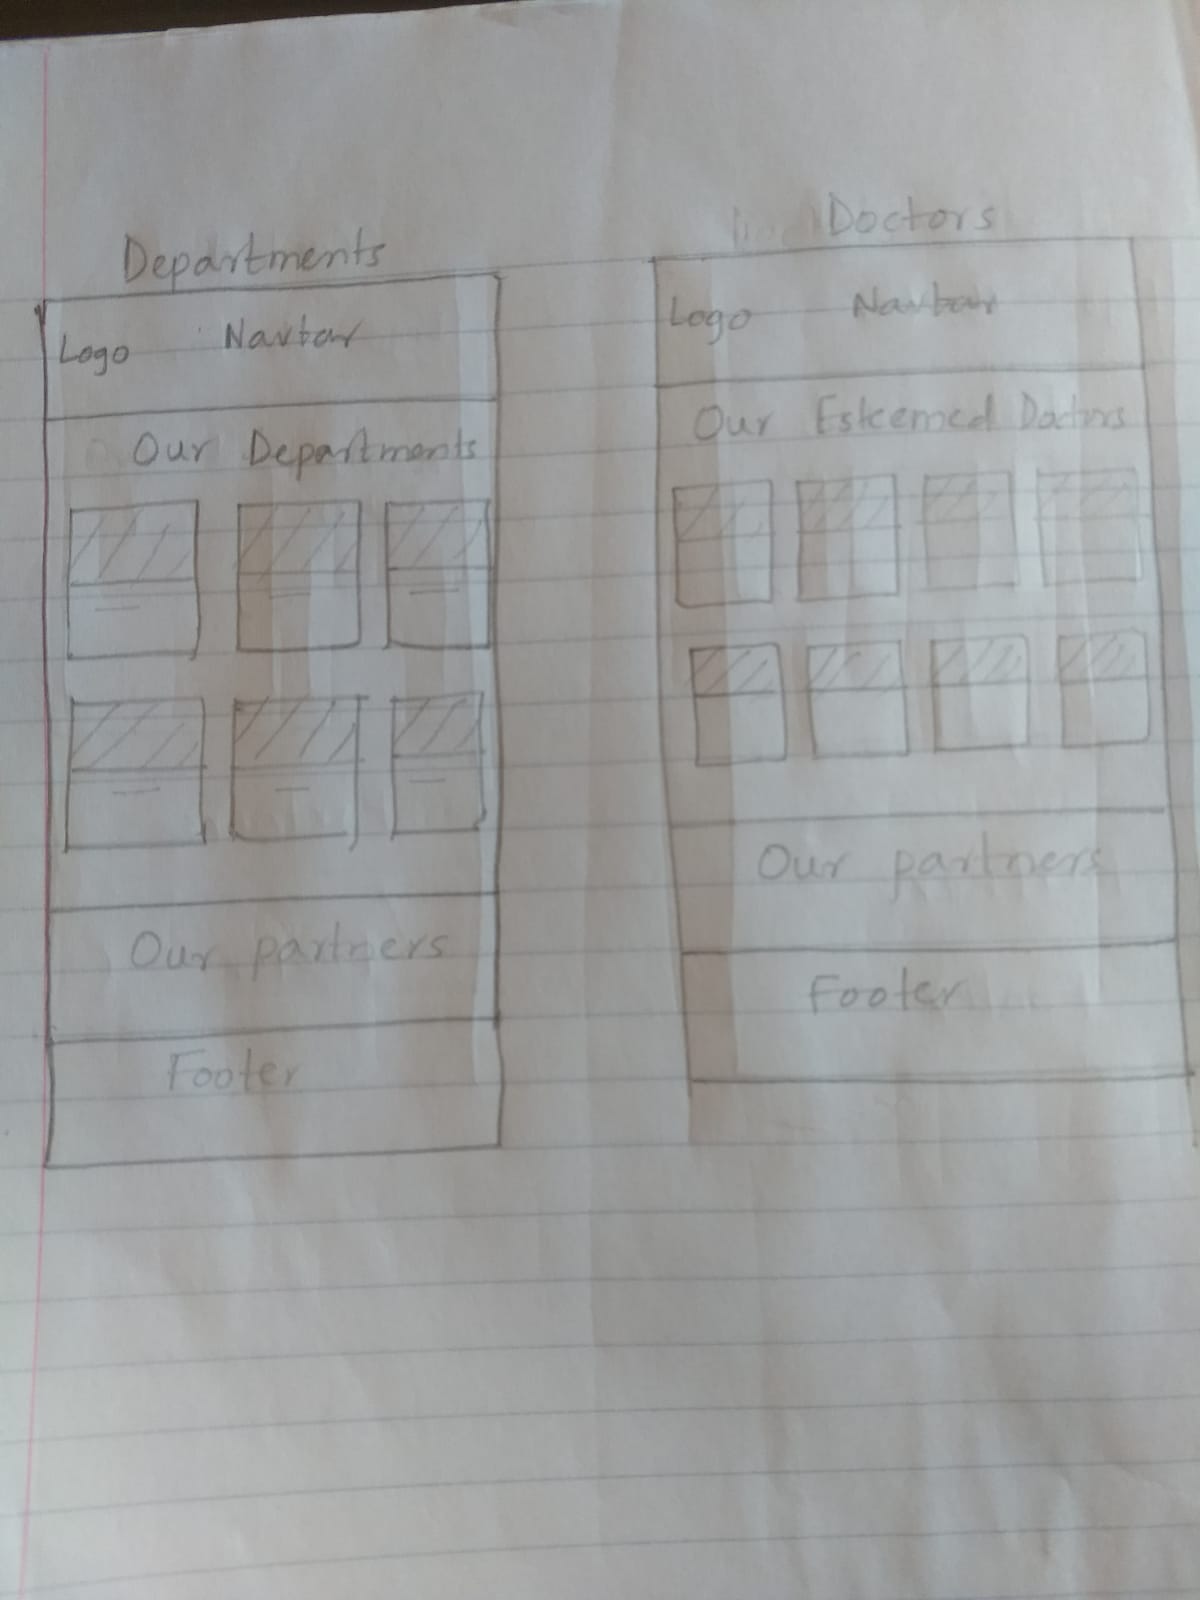 Departments
Logo Navbar
Our Departments
Our partners
Footer
Doctors
Logo Navbar
Our Esteemed Doctors
Our partners
Footer